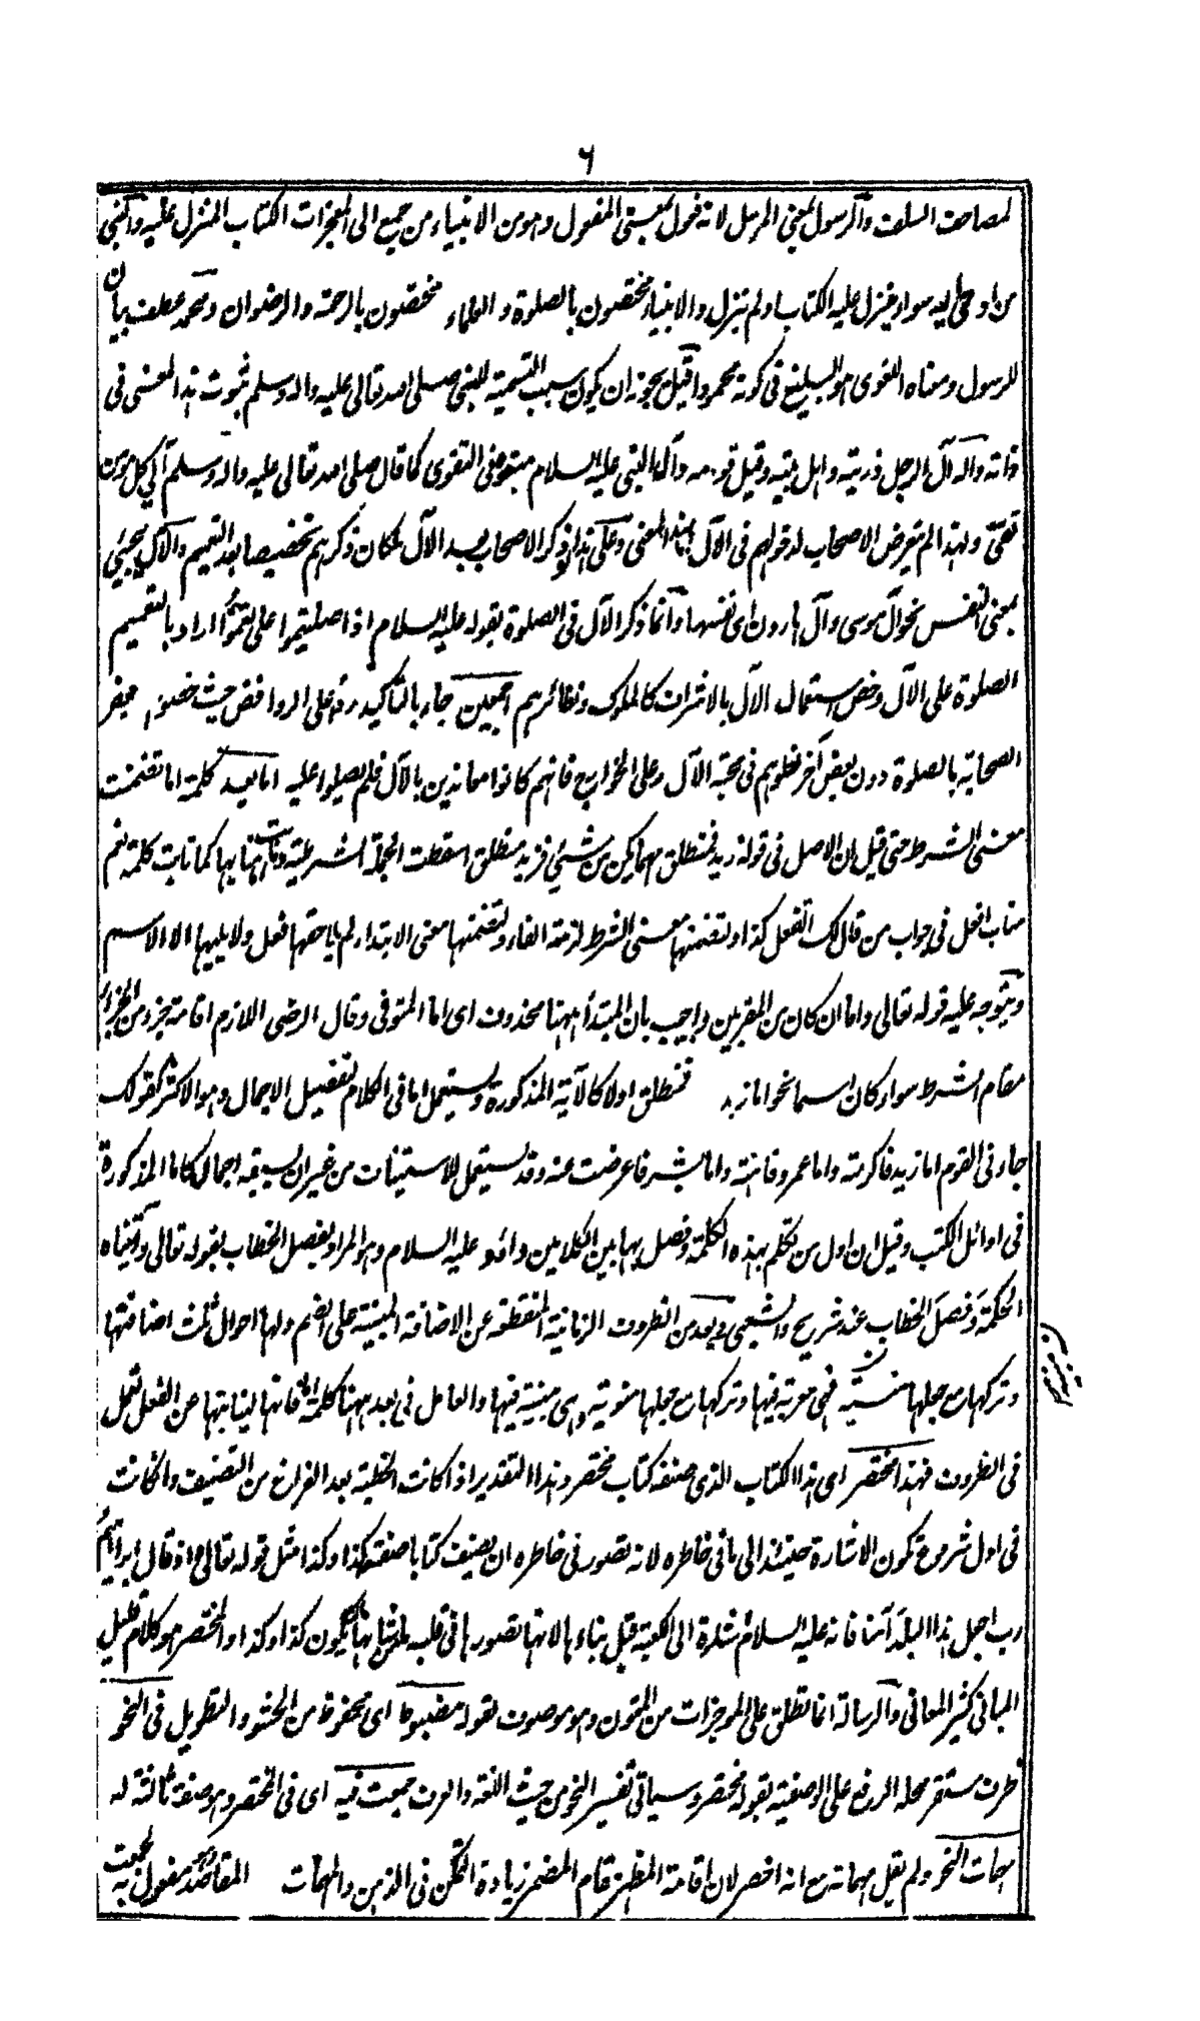 ٦
لمصاحف السلف والرسول بمعنى المرسل لانه فعول بمعنى المفعول وهو من الانبياء من جمع الى المعجزات الكتاب المنزل عليه والنبي
من اوحي اليه سواء ينزل عليه الكتاب او لم ينزل والانبياء مختصون بالصلوة والعلماء مختصون بالرحمة والرضوان ومحمد عطف بيان
للرسول ومعناه اللغوى هو البليغ فى كونه محمودا قيل يجوز ان يكون سبب التسمية للنبي صلى الله تعالى عليه واله وسلم ثبوت هذا المعنى فى
ذاته واله آل الرجل ذريته واهل بيته وقيل قومه وآل النبي عليه السلام متبعوه فى التقوى كما قال صلى الله تعالى عليه واله وسلم آلي كل مومن
تقيّ ولهذا لم يتعرض الاصحاب لدخولهم فى الآل بهذا المعنى وعلى هذا لو ذكر الاصحاب بعد الآل لكان ذكرهم تخصيصا بعد التعميم والآل يجيئ
بمعنى النفس نحو آل موسى وآل هارون اى نفسهما وانما ذكر الآل فى الصلوة بقوله عليه السلام اذا صليتم على فعمموا اراد بالتعميم
الصلوة على الآل وخص استعمال الآل بالاشراف كالملوك ونظائرهم اجمعين جاء بالتاكيد ردا على الروافض حيث خصوا بعض
الصحابة بالصلوة دون بعض آخر لغلوهم فى محبة الآل وعلى الخوارج فانهم كانوا معاندين بالآل فلم يصلوا عليه اما بعد كلمة اما تضمنت
معنى الشرط حتى قيل ان الاصل فى قوله زيد فمنطلق مهما يكن من شيئ فزيد منطلق اسقطت الجملة الشرطية ونابت اما منابها كما نابت كلمة نعم
مناب افعل فى جواب من قال لك اتفعل كذا ولتضمنها معنى الشرط لزمته الفاء ولتضمنها معنى الابتداء لم يلحقها فعل ولا يليها الا الاسم
ويتوجه عليه قوله تعالى واما ان كان من المقربين واجيب بان المبتدأ ههنا محذوف اى اما المتوفى وقال الرضى اللازم اقامة جزء من الجزاء
مقام الشرط سواء كان اسما نحو اما زيد فمنطلق اولا كالآية المذكورة ويستعمل اما فى الكلام لتفصيل الاجمال وهو الاكثر كقولك
جاء فى القوم اما زيد فاكرمته واما عمرو فاهنته واما بشر فاعرضت عنه وقد يستعمل للاستيناف من غير ان يسبقه اجمال كاما المذكورة
فى اوائل الكتب وقيل ان اول من تكلم بهذه الكلمة وفصل بها بين الكلامين داؤد عليه السلام وهو المراد بفصل الخطاب بقوله تعالى وآتيناه
الحكمة وفصل الخطاب عند شريح والشعبى وبعد من الظروف الزمانية المنقطعة عن الاضافة المبنية على الضم ولها احوال ثلث اضافتها
وتركها مع جعلها منسية فهي معربة فيها وتركها مع جعلها منوية وهى مبنية فيها والعامل فى بعد ههنا كلمة اما فانها لنيابتها عن الفعل تعمل
فى الظروف فهذا مختصر اى هذا الكتاب الذى صنفه كتاب مختصر وهذا التقدير اذا كانت الخطبة بعد الفراغ من التصنيف وان كانت
فى اول شروع تكون الاشارة حينئذ الى ما فى خاطره لانه تصور فى خاطره ان يصنف كتابا صفته كذا وكذا مثل قوله تعالى واذ قال ابراهيم
رب اجعل هذا البلد آمنا فانه عليه السلام اشارة الى الكعبة قبل بناءها لانه تصورها فى قلبه يكون كذا وكذا والمختصر هو كلام قليل
المبانى كثير المعانى والرسالة انما تطلق على الموجزات من المتون وهو موصوف بقوله مضبوط اى محفوظ من الحشو والتطويل فى النحو
ظرف مستقر محله الرفع على الوصفية بقوله مختصر وسياتى تفسير النحو من حيث اللغة والعرف جمعت فيه اى فى المختصر وهو صفة ثالثة له
مهمات النحو ولم يقل مهماته مع انه اخصر لان اقامة المظهر مقام المضمر زيادة التمكن فى الذهن والمهمات المقاصد وهو مفعول به لجمعت